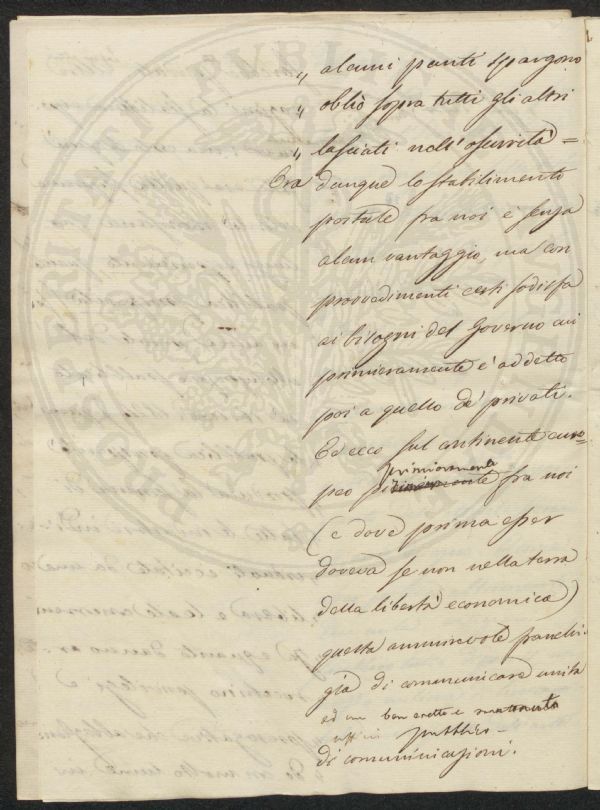 „ alcuni punti spargono
„ obliò sopra tutti gli altri
„ lasciati nell'oscurità =
Ora dunque lo stabilimento
postale fra noi è senza
alcun vantaggio, ma con
provvedimenti certi sodisfa
ai bisogni del Governo cui
primieramente è addetto
poi a quello de' privati.
Ed ecco sul continente euro=
peo primieramente fra noi
(e dove prima esser
doveva se non nella terra
della libertà economica)
questa ammirevole franchi
gia di comunicare unita
ad un ben eretto e
uffizi pubblico
di comunicazioni.